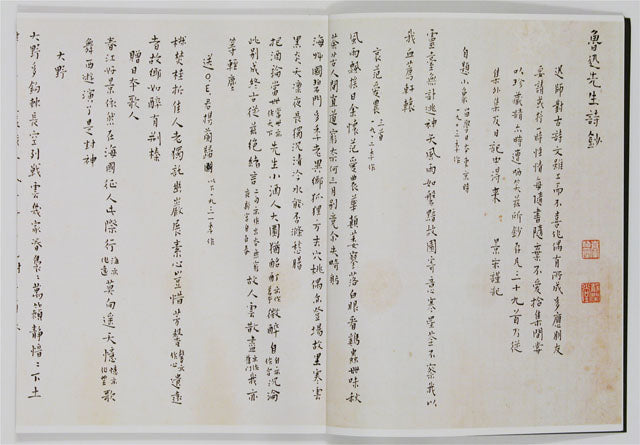 魯迅先生詩鈔
迅師對古詩文雖工而不喜作偶有所成多應朋友
要請或抒一時性情每隨書隨棄不愛拾集聞嘗
以珍藏請亦時遭哂笑茲所鈔存凡三十九首乃從
集外集及日記得來 景宋謹記
自題小象 留學日本東京時 一九〇三年作
靈臺無計逃神矢風雨如磐黯故園寄意寒星荃不察我以
我血薦軒轅
哀范愛農 三首 一九一二年作
風雨飄搖日余懷范愛農華顛萎寥落白眼看雞蟲世味秋
荼苦人間直道窮奈何三月別竟爾失畸躬
海艸國門碧多年老異鄉狐狸方去穴桃偶盡登場故里寒雲
黑炎天凜夜長獨沈清冷水能否滌愁腸
把酒論當世先生小酒人大圜猶酩酊微醉自沉淪
此別成終古從茲絕緒言故人雲散盡我亦
等輕塵
送O.E.君攜蘭歸國 以下一九三一年作
椒焚桂折佳人老獨託幽巖展素心豈惜芳馨遺遠
者故鄉如醉有荊榛
贈日本歌人
春江好景依然在海國征人此際行莫向遙天憶歌
舞西游演了是封神
大野
大野多鉤棘長空列戰雲幾家春裊〻萬籟靜愔〻下土